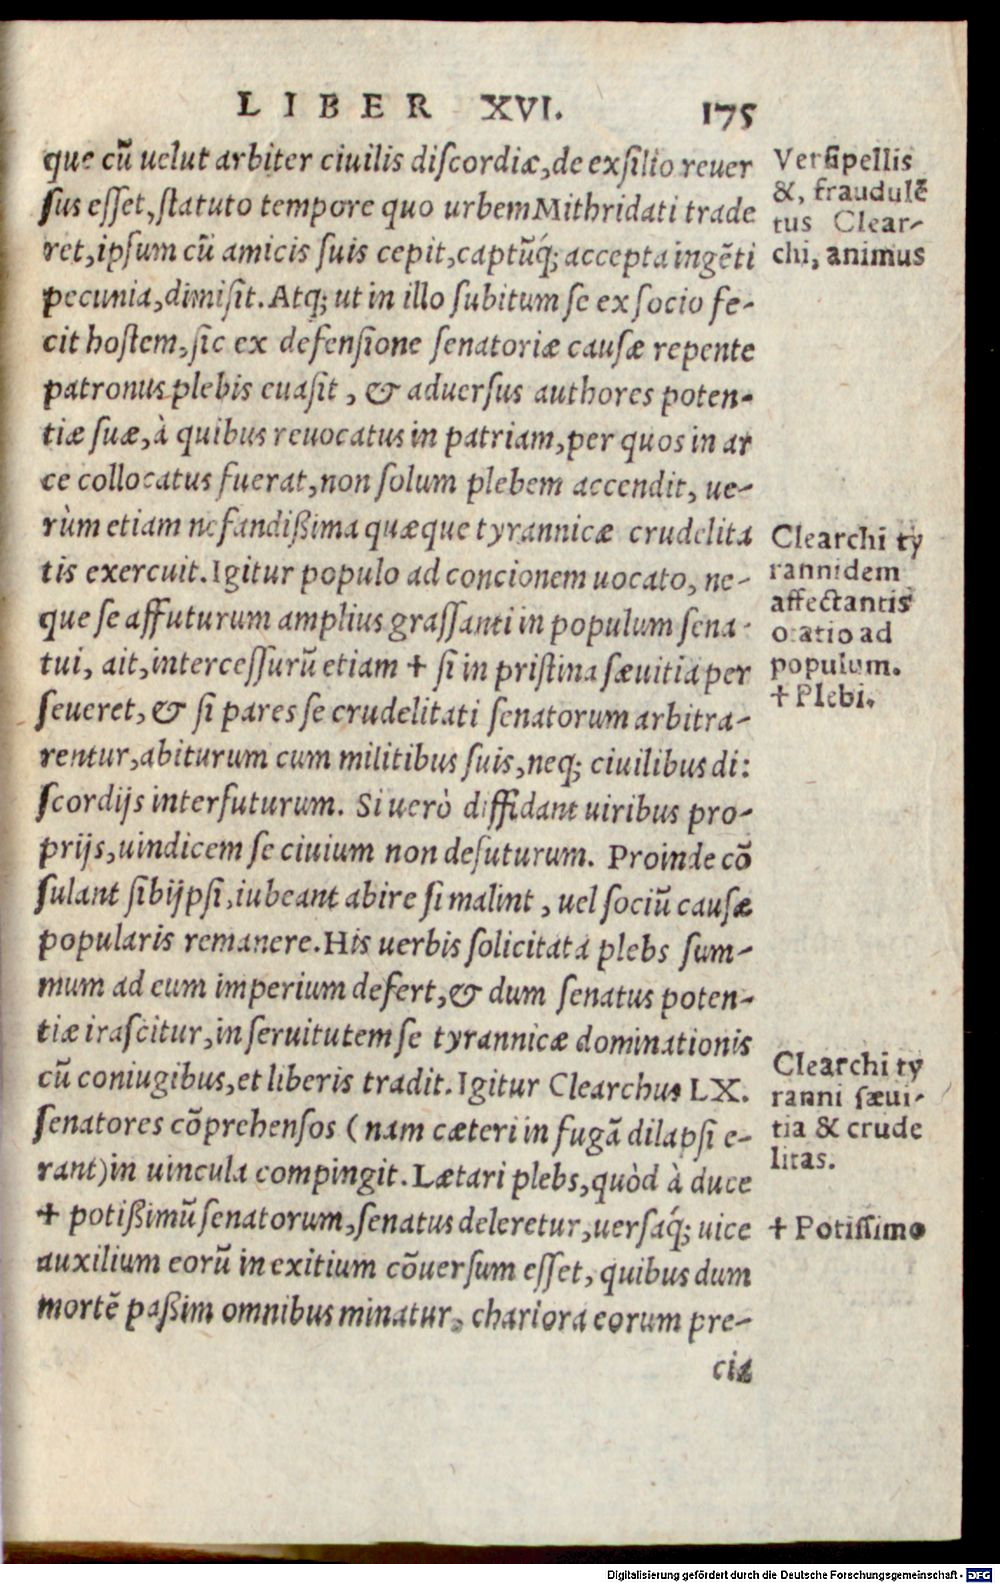 LIBER XVI. 175
que cū uelut arbiter ciuilis diſcordiæ, de exſilio reuer
ſus eſſet, ſtatuto tempore quo urbem Mithridati trade
ret, ipſum cū amicis ſuis cepit, captūq́; accepta ingēti
pecunia, dimiſit. Atq; ut in illo ſubitum ſe ex ſocio fe-
cit hoſtem, ſic ex defenſione ſenatoriæ cauſæ repente
patronus plebis euaſit, & aduerſus authores poten-
tiæ ſuæ, à quibus reuocatus in patriam, per quos in ar
ce collocatus fuerat, non ſolum plebem accendit, ue-
rùm etiam nefandißima quæque tyrannicæ crudelita
tis exercuit. Igitur populo ad concionem uocato, ne-
que ſe affuturum amplius graſſanti in populum ſena-
tui, ait, interceſſurū etiam † ſi in priſtina ſæuitia per
ſeueret, & ſi pares ſe crudelitati ſenatorum arbitra-
rentur, abiturum cum militibus ſuis, neq; ciuilibus di:
ſcordijs interfuturum. Si uerò diffidant uiribus pro-
prijs, uindicem ſe ciuium non defuturum. Proinde cō
ſulant ſibijpſi, iubeant abire ſi malint, uel ſociū cauſæ
popularis remanere. His uerbis ſolicitata plebs ſum-
mum ad eum imperium defert, & dum ſenatus poten-
tiæ iraſcitur, in ſeruitutem ſe tyrannicæ dominationis
cū coniugibus, et liberis tradit. Igitur Clearchus LX.
ſenatores cōprehenſos (nam cæteri in fugā dilapſi e-
rant) in uincula compingit. Lætari plebs, quòd à duce
† potißimū ſenatorum, ſenatus deleretur, uerſaq́; uice
auxilium eorū in exitium cōuerſum eſſet, quibus dum
mortē paßim omnibus minatur, chariora eorum pre-
cia
Verſipellis
&, fraudulē
tus Clear-
chi, animus
Clearchi ty
rannidem
affectantis
oratio ad
populum.
† Plebi.
Clearchi ty
ranni ſæui-
tia & crude
litas.
† Potiſſimo
Digitalisierung gefördert durch die Deutsche Forschungsgemeinschaft - DFG